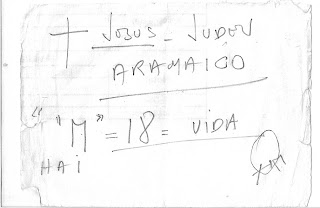 JESUS - JUDEU
ARAMAICO
" "M" = 18 = VIDA
HAI